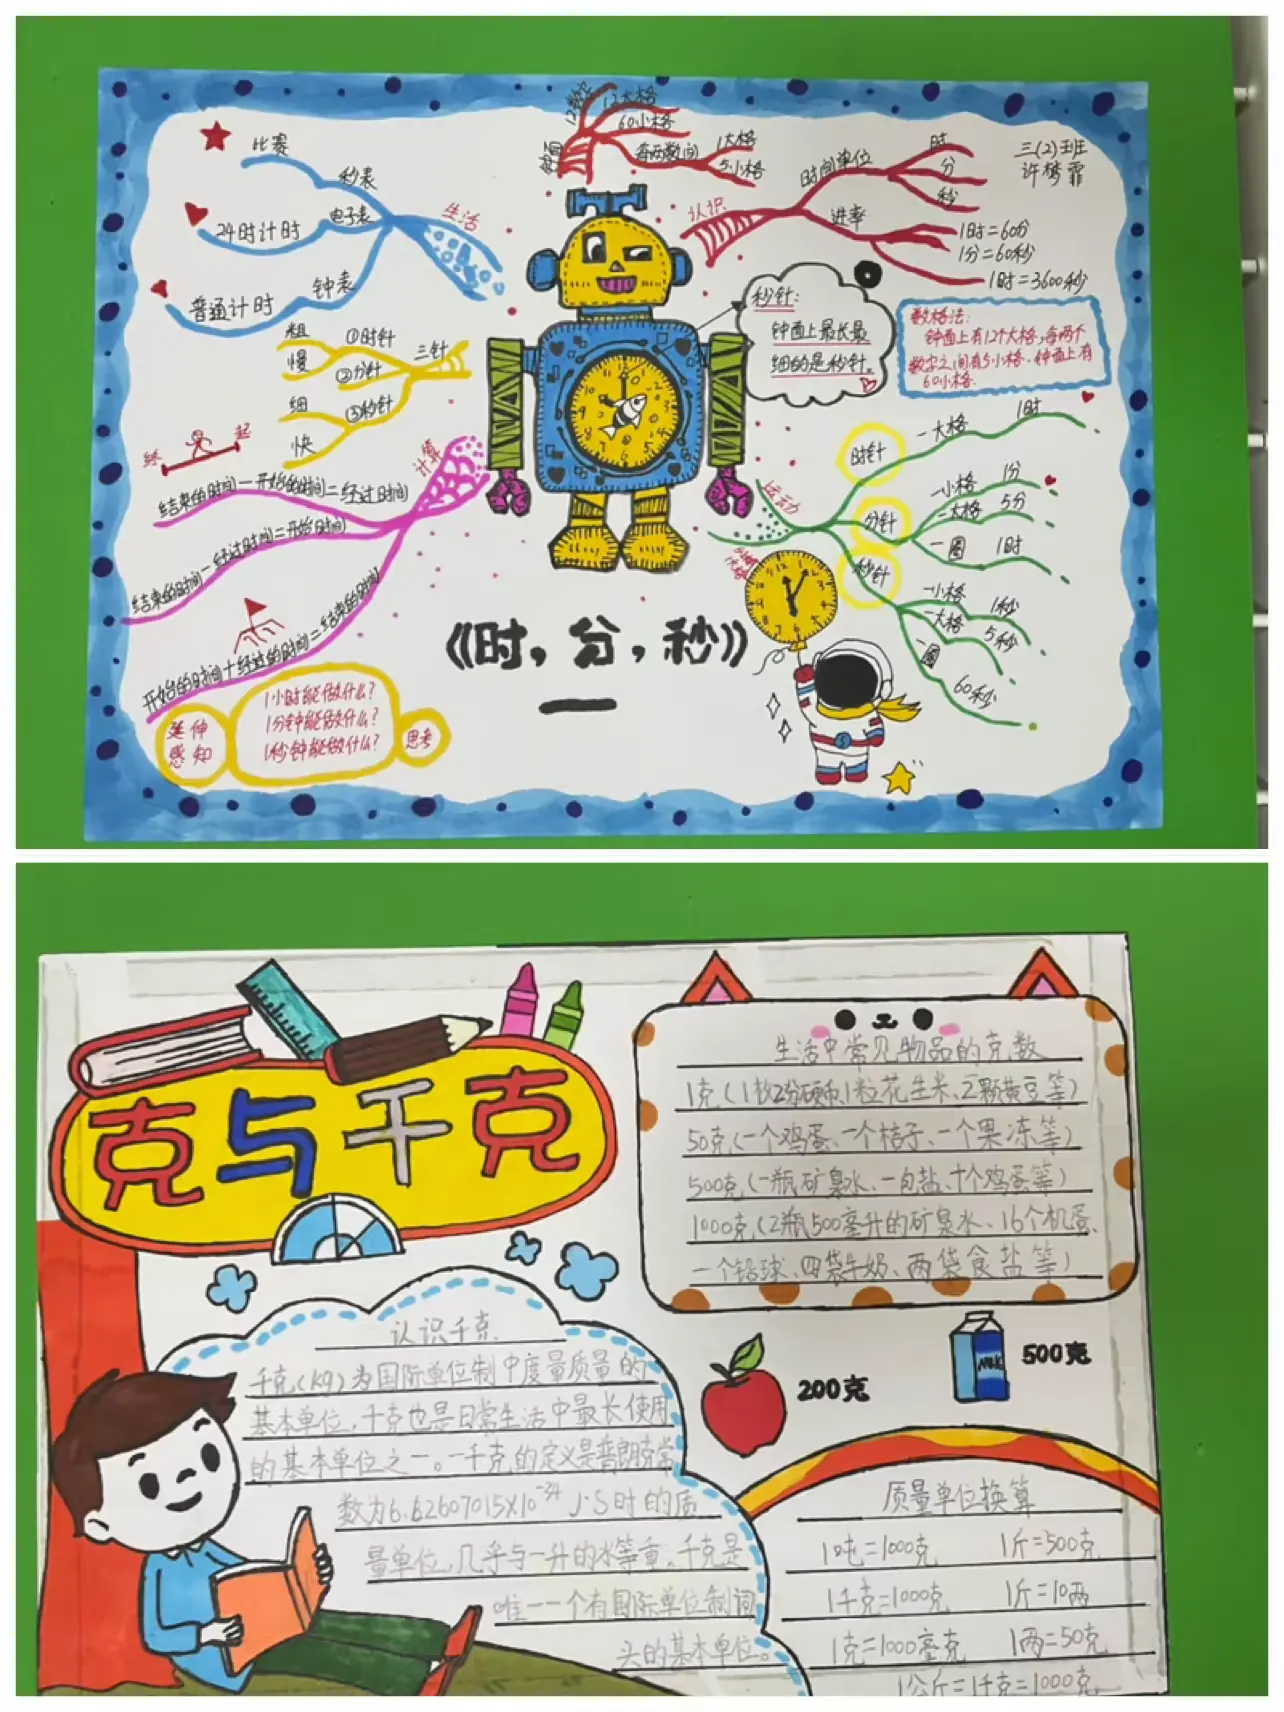 比赛
秒表
24时计时
电子表
生活
普通计时
钟表
钟面
12数字
12大格
60小格
每两数间
1大格
5小格
认识
时间单位
时
分
秒
进率
1时=60分
1分=60秒
1时=3600秒
三(2)班
许梦霏
粗
慢
①时针
②分针
三针
细
快
③秒针
秒针:
钟面上最长最
细的是秒针。
数格法:
钟面上有12个大格,每两个
数字之间有5小格、钟面上有
60小格.
终
起
计算
结束的时间-开始的时间=经过时间
结束的时间-经过时间=开始时间
开始的时间+经过的时间=结束的时间
运动
时针
一大格
1时
分针
一小格
1分
一大格
5分
一圈
1时
秒针
一小格
1秒
一大格
5秒
一圈
60秒
《时,分,秒》
延伸
感知
1小时能做什么?
1分钟能做什么?
1秒钟能做什么?
思考
克与千克
生活中常见物品的克数
1克(1枚2分硬币、1粒花生米、2颗黄豆等)
50克(一个鸡蛋、一个桔子、一个果冻等)
500克(一瓶矿泉水、一包盐、十个鸡蛋等)
1000克(2瓶500毫升的矿泉水、16个机蛋、
一个铅球、四袋牛奶、两袋食盐等)
MILK
500克
200克
认识千克
千克(kg)为国际单位制中度量质量的
基本单位,千克也是日常生活中最长使用
的基本单位之一。一千克的定义是普朗克常
数为6.62607015×10⁻³⁴ J·S时的质
量单位,几乎与一升的水等重。千克是
唯一一个有国际单位制词
头的基本单位。
质量单位换算
1吨=1000克 1斤=500克
1千克=1000克 1斤=10两
1克=1000毫克 1两=50克
1公斤=1千克=1000克